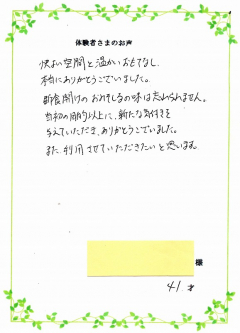 体験者さまのお声
快よい空間と温かいおもてなし
本当にありがとうございました。
断食開けの おみそしるの味は忘れられません。
当初の目的以上に、新たな気付きを
与えていただき、ありがとうございました。
また、利用させていただきたいと思います。
様
41才